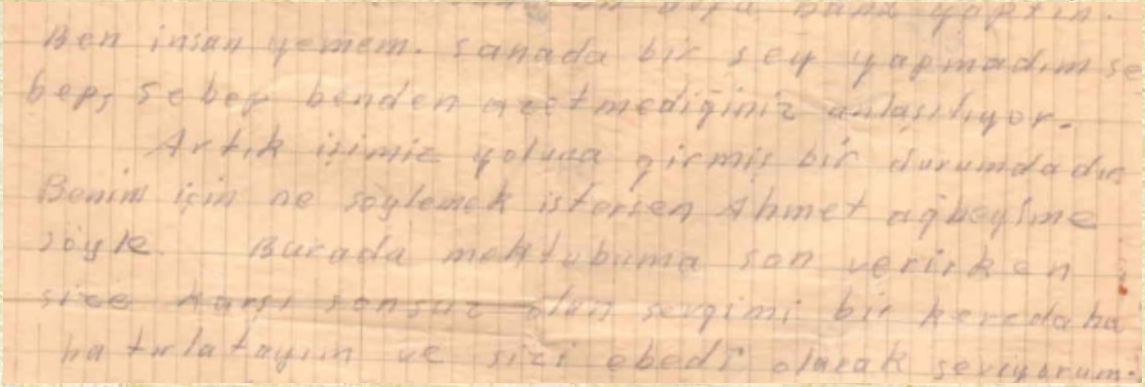 bana yaptın.
Ben insan yemem. sanada bir şey yapmadım se
bep, sebep benden azetmediğiniz anlaşılıyor.
Artık işimiz yoluna girmiş bir durumdadır
Benim için ne söylemek istersen Ahmet ağbeyime
söyle. Burada mektubuma son verirken
size karşı sonsuz olan sevgimi bir keredaha
hatırlatayım ve sizi ebedi olarak seviyorum.